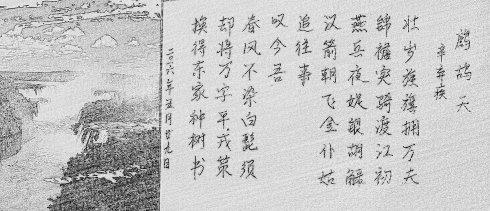 鹧鸪天
辛弃疾
壮岁旌旗拥万夫
锦襜突骑渡江初
燕兵夜娖银胡
汉箭朝飞金仆姑
追往事
叹今吾
春风不染白髭须
却将万字平戎策
换得东家种树书
六年五月廿九日